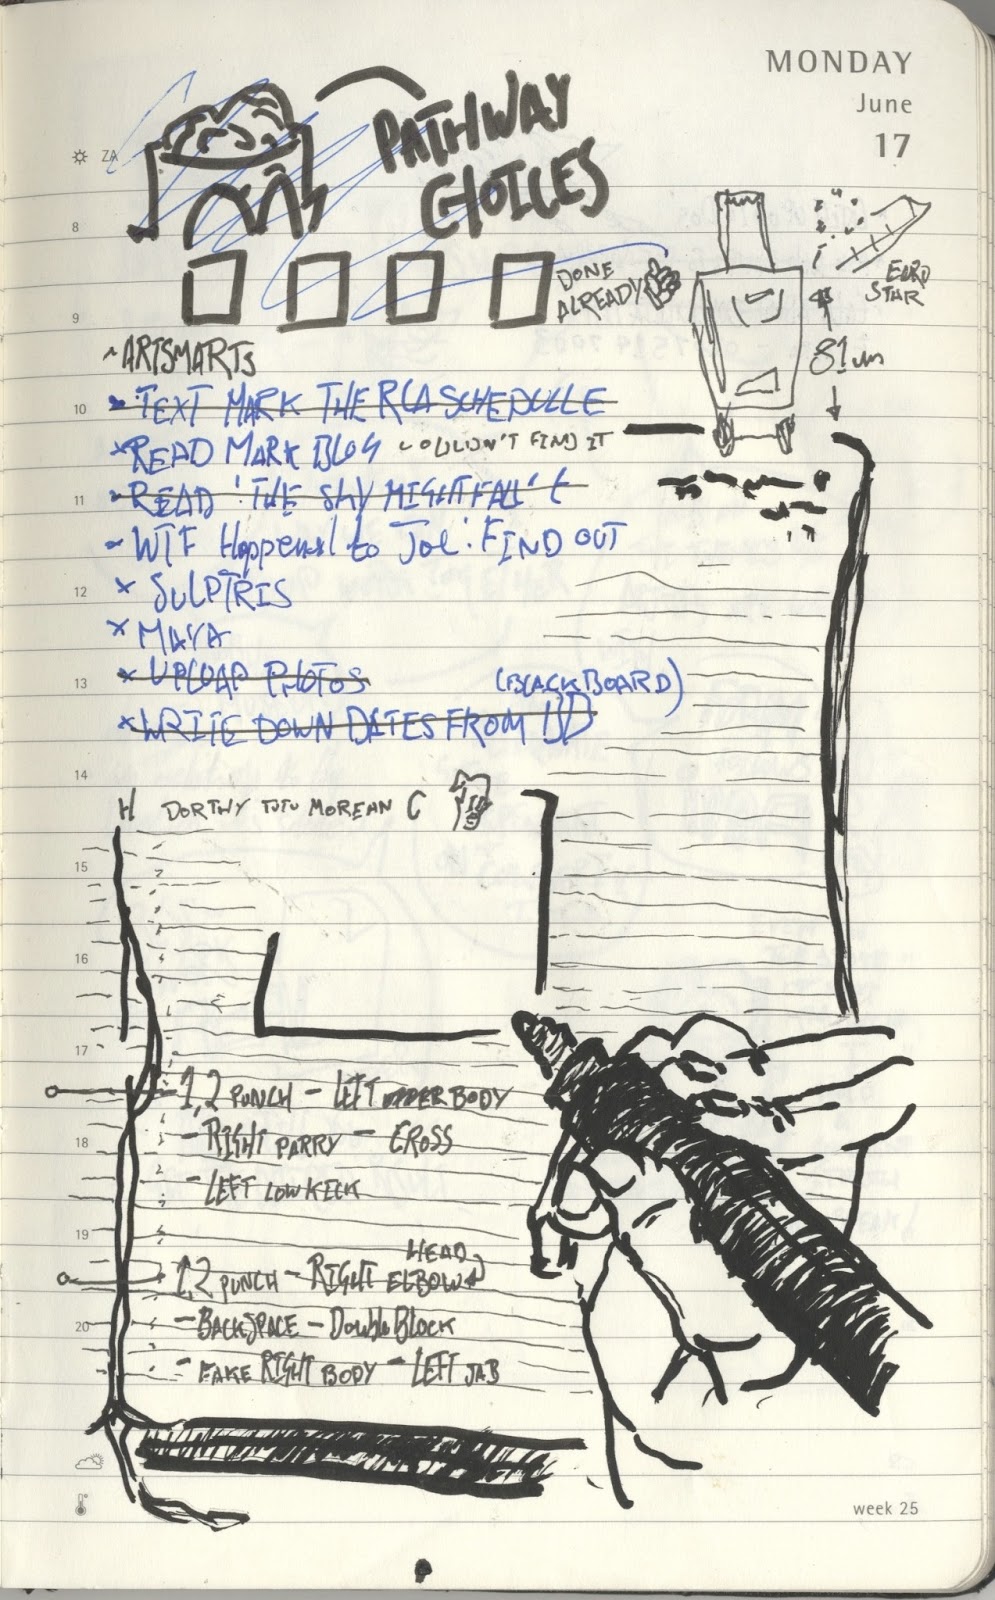 MONDAY
June
17
ZA
PATHWAY
CHOICES
8
DONE
ALREADY
EURO
STAR
9
81cm
~ARTSMARTS
10 TEXT MARK THE RCA SCHEDULLE
READ MARK BLOG COULDN'T FIND IT
11 READ 'THE SKY MIGHT FALL'
~WTF Happened to Joe: FIND OUT
12 × SULPTRIS
× MAYA
13 × UPLOAD PHOTOS (BLACKBOARD)
× WRITE DOWN DATES FROM
14
H DORTHY TUTU MOREAN C
15
16
17
1,2 PUNCH - LEFT UPPER BODY
18 - RIGHT PARRY - CROSS
- LEFT LOW KICK
19
HEAD
1,2 PUNCH - RIGHT ELBOW
20 - BACKSPACE - Double BLOCK
- FAKE RIGHT BODY - LEFT JAB
week 25